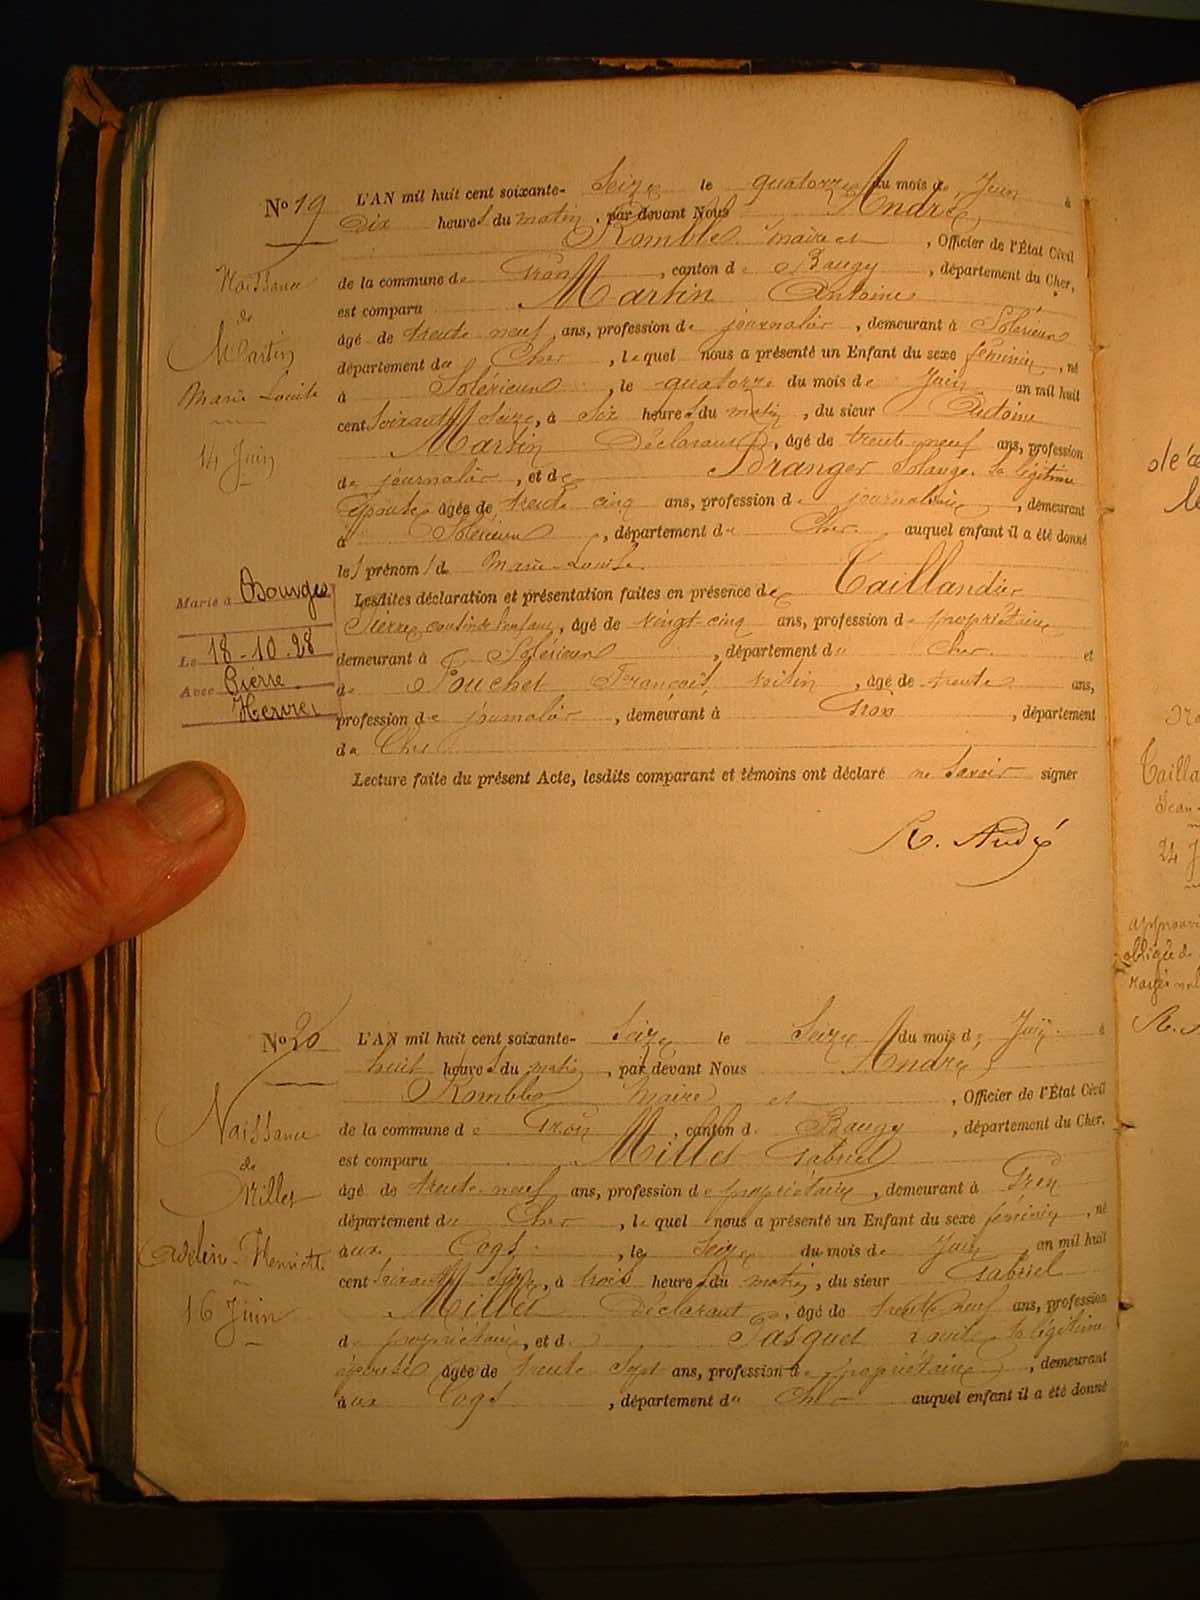 No 19 L'AN mil huit cent soixante- Seize le quatorze du mois de Juin à
Dix heures du matin, par devant Nous André
Romble maire et , Officier de l'État Civil
Naissance
de la commune de Gron , canton de Baugy , département du Cher,
est comparu Martin Antoine
de
âgé de trente neuf ans, profession de journalier , demeurant à Solérieux
Martin
département du Cher , lequel nous a présenté un Enfant du sexe féminin , né
Marie Louise
à Solérieux , le quatorze du mois de Juin an mil huit
cent Soixante Seize, à Six heures du matin , du sieur Antoine
14 Juin
Martin Déclarant , âgé de trente-neuf ans, profession
de journalier , et de Branger Solange, sa légitime
épouse âgée de trente cinq ans, profession de journalière , demeurant
à Solérieux , département du Cher auquel enfant il a été donné
les prénoms de Marie-Louise
Marié à Bourges
Le 18-10-28
Avec Pierre
Hervet
Lesdites déclaration et présentation faites en présence de Taillandier
Pierre, cousin de l'enfant, âgé de vingt-cinq ans, profession de propriétaire
demeurant à Solérieux , département du Cher et
de Pouchet François, voisin , âgé de trente ans,
profession de journalier , demeurant à Gron , département
du Cher
Lecture faite du présent Acte, lesdits comparant et témoins ont déclaré ne savoir signer
R. André
No 20 L'AN mil huit cent soixante- Seize le Seize du mois de Juin à
huit heures du matin , par devant Nous André
Romble Maire et , Officier de l'État Civil
Naissance
de la commune de Gron , canton de Baugy , département du Cher,
est comparu Millet Gabriel
de
Millet
âgé de trente-neuf ans, profession de propriétaire , demeurant à Gron
département du Cher , lequel nous a présenté un Enfant du sexe féminin , né
Adelin-Henriette
aux Cogs , le Seize du mois de Juin an mil huit
cent Soixante Seize, à trois heures du matin , du sieur Gabriel
16 Juin
Millet Déclarant , âgé de trente neuf ans, profession
de propriétaire, et de Pasquet Louise sa légitime
épouse âgée de trente Sept ans, profession de propriétaire , demeurant
aux Cogs , département du Cher auquel enfant il a été donné
Tailla
Jean-
24 J
approuvé
obliqué de
rayés nul
R. A